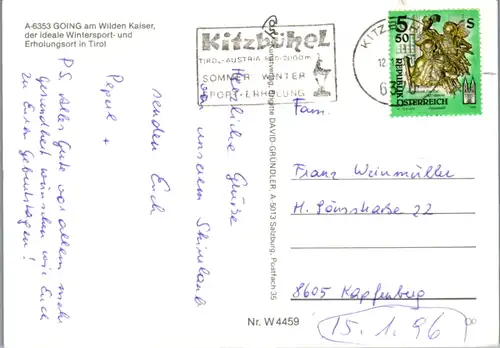 A-6353 GOING am Wilden Kaiser,
der ideale Wintersport- und
Erholungsort in Tirol
Kitzbühel
TIROL-AUSTRIA 800-2000m
SOMMER WINTER
SPORT-ERHOLUNG
5 50 S
REPUBLIK
ÖSTERREICH
Herzliche Grüße
von unserem Skiurlaub
senden Euch
Pepul +
P.S. Alles Gute vor allem mehr
Gesundheit wünschen wir Euch
zu Euren Geburtstagen!
DAVID GRÜNDLER, A 5013 Salzburg, Postfach 35
Fam.
Franz Weinmüller
H. Lönsstraße 22
8605 Kapfenberg
15. 1. 96
Nr. W 4459